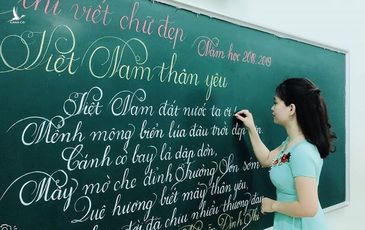 thi viết chữ đẹp
Năm học 2018-2019
Việt Nam thân yêu
Việt Nam đất nước ta ơi
Mênh mông biển lúa đâu trời đẹp hơn.
Cánh cò bay lả dập dờn,
Mây mờ che đỉnh Trường Sơn sớm
Quê hương biết mấy thân yêu,
đời đã chịu nhiều thương đau
Đình Thi